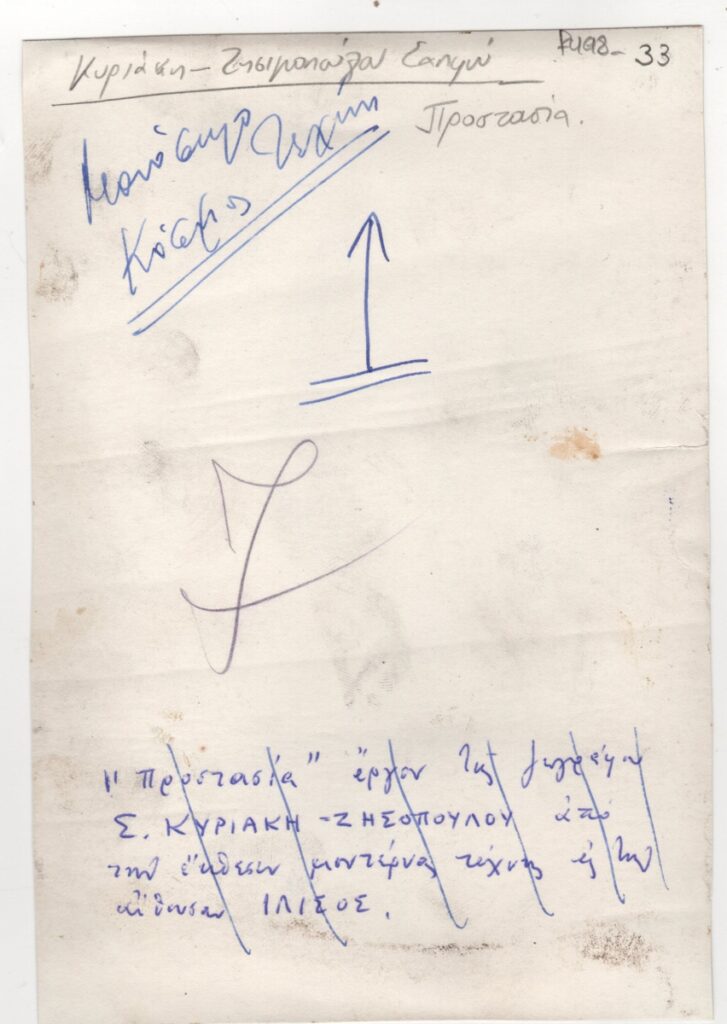 Κυριάκη - Σαπφώ
Ρ498- 33
Προστασία.
Μονόστηλο τέχνη
Κόσμος
7
"Προστασία" ἔργον τῆς ζωγράφου
Σ. ΚΥΡΙΑΚΗ-ΖΗΣΟΠΟΥΛΟΥ ἀπό
την ἔκθεσιν μοντέρνας τέχνης εἰς τὴν
αἴθουσαν ΙΛΙΣΟΣ.